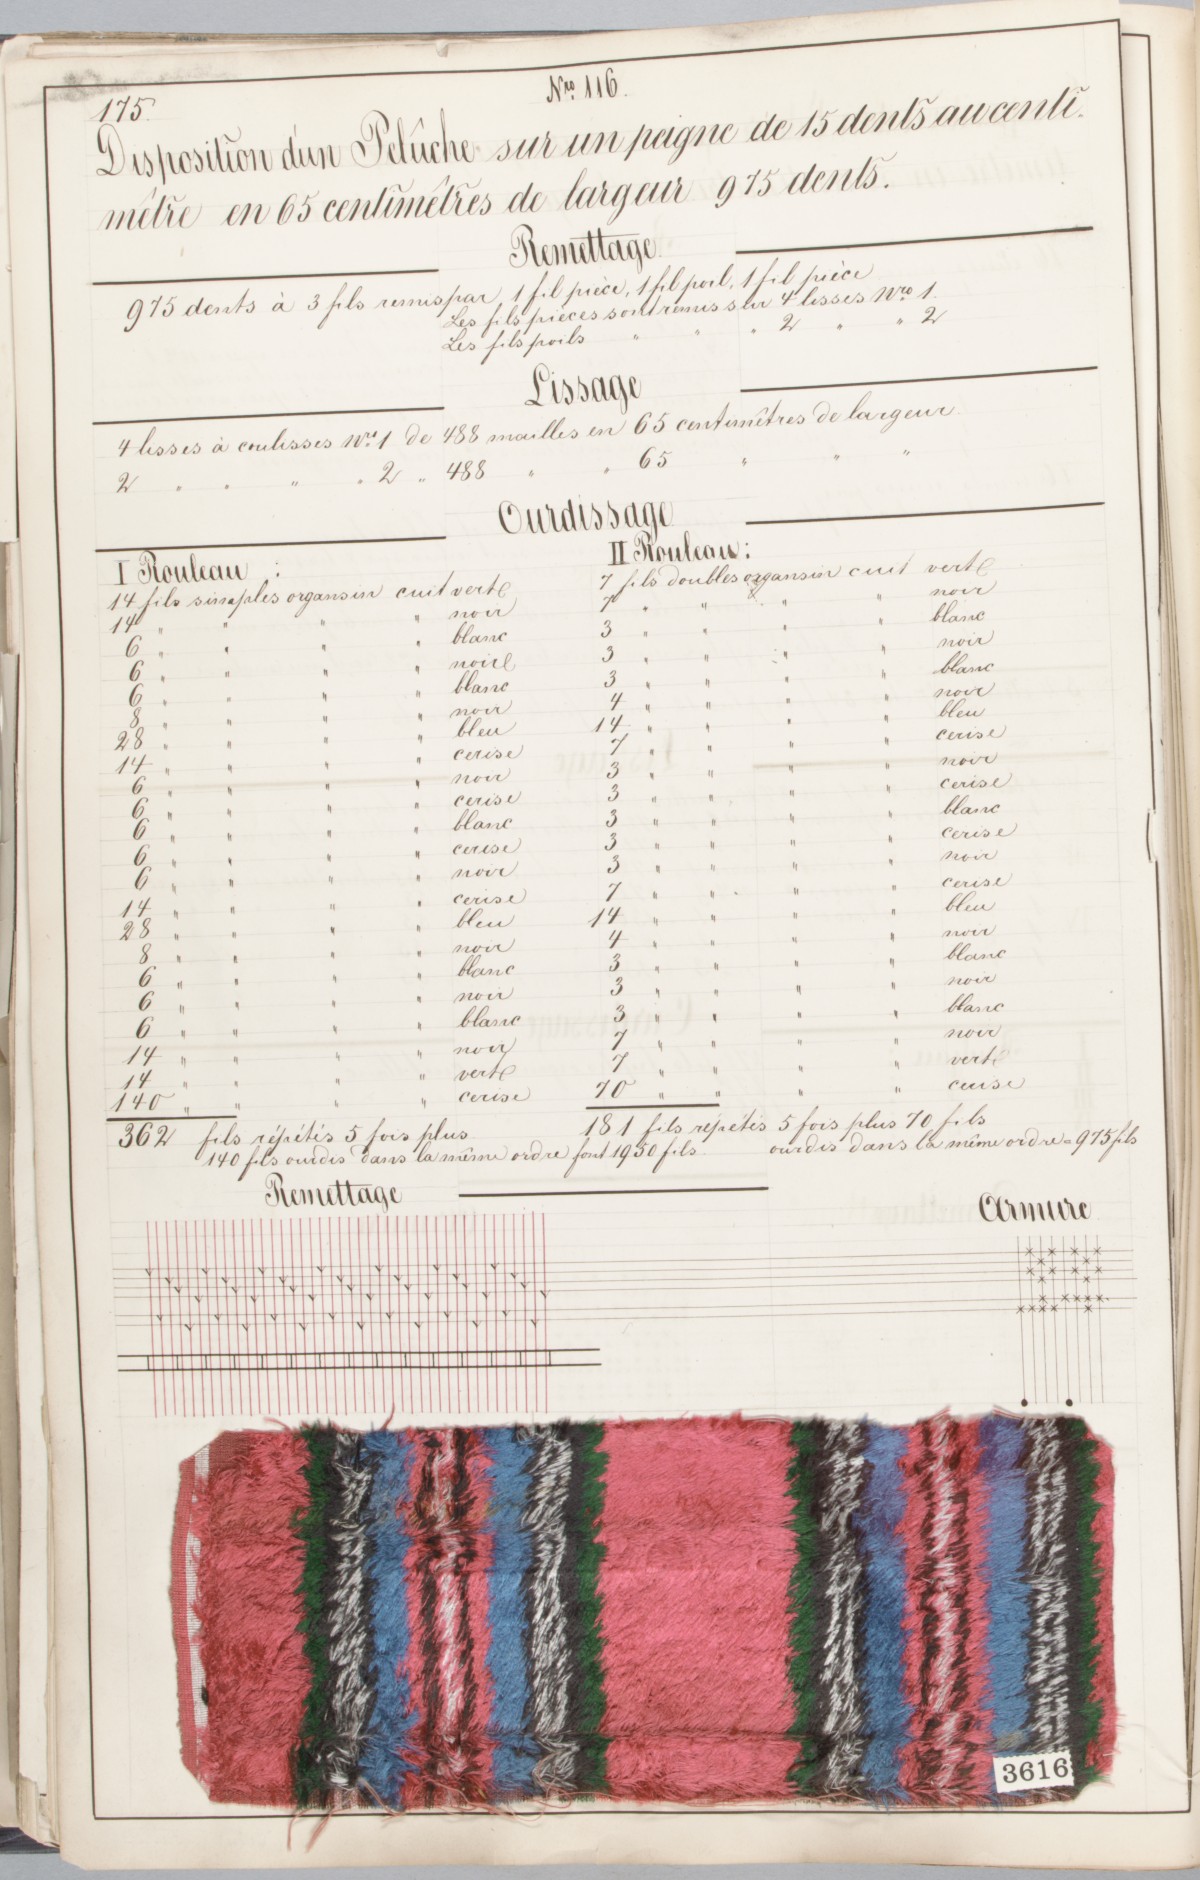 Nro 116.
175.
Disposition d'un Pelûche sur un peigne de 15 dents au centi-
mêtre en 65 centimêtres de largeur 975 dents.
Remettage
975 dents à 3 fils remis par 1 fil pièce, 1 fil poil, 1 fil pièce
Les fils pièces sont remis sur 4 lisses Nro 1.
Les fils poils " " " 2 " " 2
Lissage
4 lisses à coulisses Nro 1 de 488 mailles en 65 centimêtres de largeur
2 " " " " 2 " 488 " " 65 " " "
Ourdissage
I Rouleau :
14 fils simples organsin cuit verte
14 " " " " noir
6 " " " " blanc
6 " " " " noire
6 " " " " blanc
8 " " " " noir
28 " " " " bleu
14 " " " " cerise
6 " " " " noir
6 " " " " cerise
6 " " " " blanc
6 " " " " cerise
6 " " " " noir
14 " " " " cerise
28 " " " " bleu
8 " " " " noir
6 " " " " blanc
6 " " " " noir
6 " " " " blanc
14 " " " " noir
14 " " " " verte
140 " " " " cerise
362 fils répétés 5 fois plus
140 fils ourdis dans la même ordre font 1950 fils
II Rouleau :
7 fils doubles organsin cuit verte
7 " " " " noir
3 " " " " blanc
3 " " " " noir
3 " " " " blanc
4 " " " " noir
14 " " " " bleu
7 " " " " cerise
3 " " " " noir
3 " " " " cerise
3 " " " " blanc
3 " " " " cerise
3 " " " " noir
7 " " " " cerise
14 " " " " bleu
4 " " " " noir
3 " " " " blanc
3 " " " " noir
3 " " " " blanc
7 " " " " noir
7 " " " " verte
70 " " " " cerise
181 fils répétés 5 fois plus 70 fils
ourdis dans la même ordre = 975 fils
Remettage
Armure
3616